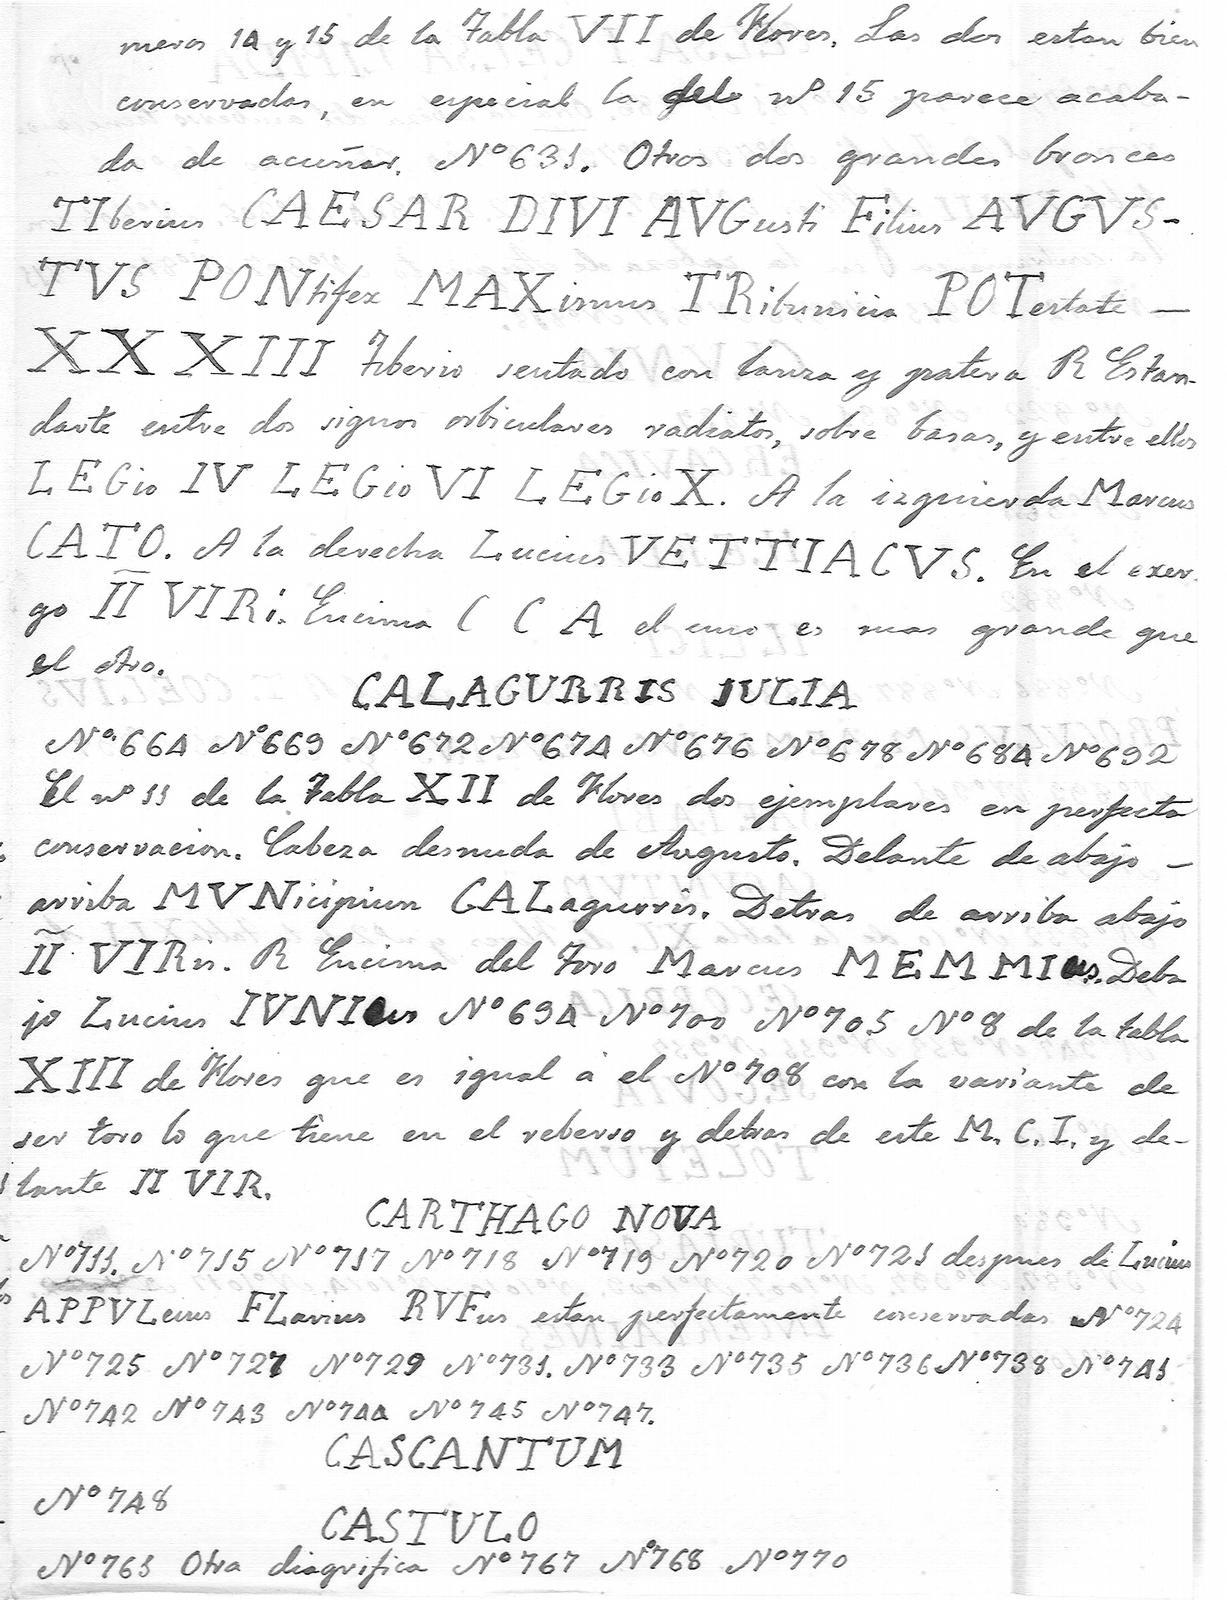 meros 14 y 15 de la Tabla VII de Flores. Las dos estan bien
conservadas, en especial la del nº 15 parece acaba-
da de acuñar. Nº 631. Otros dos grandes bronces
TIberius CAESAR DIVI AVGusti Filius AVGVS-
TVS PONtifex MAXimus TRibunicia POTestate —
XXXXIII Tiberio sentado con lanza y patera R Estan-
darte entre dos signos orbiculares radiatos, sobre basas, y entre ellos
LEGio IV LEGio VI LEGio X. A la izquierda Marcus
CATO. A la derecha Lucius VETTIACVS. En el exer-
go II VIRi. Encima C C A el uno es mas grande que
el otro.
CALAGURRIS JULIA
Nº 664 Nº 669 Nº 672 Nº 674 Nº 676 Nº 678 Nº 684 Nº 692
El nº 11 de la Tabla XII de Flores dos ejemplares en perfecta
conservacion. Cabeza desnuda de Augusto. Delante de abajo —
arriba MVNicipium CALagurris. Detras de arriba abajo
II VIRis. R Encima del Toro Marcus MEMMIus. Deba
jo Lucius IVNIus Nº 694 Nº 700 Nº 705 Nº 8 de la tabla
XIII de Flores que es igual á el Nº 708 con la variante de
ser toro lo que tiene en el reberso y detras de este M. C. I. y de-
lante II VIR.
CARTHAGO NOVA
Nº 711. Nº 715 Nº 717 Nº 718 Nº 719 Nº 720 Nº 721 despues de Lucius
APPVLeius FLavius RVFus estan perfectamente conservadas Nº 724
Nº 725 Nº 727 Nº 729 Nº 731. Nº 733 Nº 735 Nº 736 Nº 738 Nº 741
Nº 742 Nº 743 Nº 744 Nº 745 Nº 747.
CASCANTUM
Nº 748
CASTULO
Nº 761 Otra diagrifica Nº 767 Nº 768 Nº 770